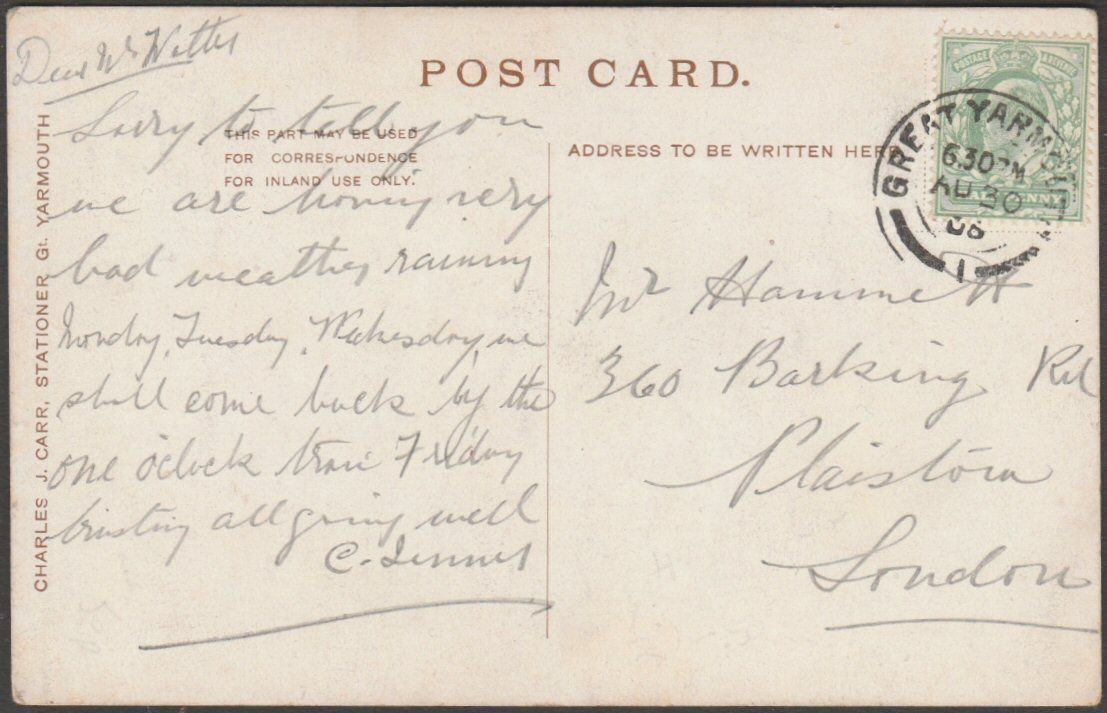 Dear Mr
POST CARD.
THIS PART MAY BE USED
FOR CORRESPONDENCE
FOR INLAND USE ONLY.
ADDRESS TO BE WRITTEN HERE
CHARLES J. CARR, STATIONER, Gt. YARMOUTH
Sorry to tell you
we are having very
bad weather raining
Monday, Tuesday, Wednesday, we
shall come back by the
one o'clock train Friday
trusting all going well
C.
POSTAGE & REVENUE
GREAT YARMOUTH
6 30 PM
AU 30
06
1
Mr Hammett
360 Barking Rd
Plaistow
London